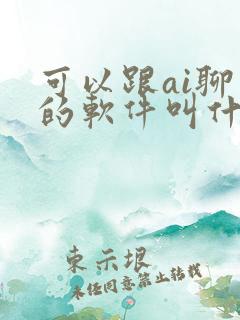 可以跟ai聊
的軟件叫什
東示垠
未经同意禁止转载